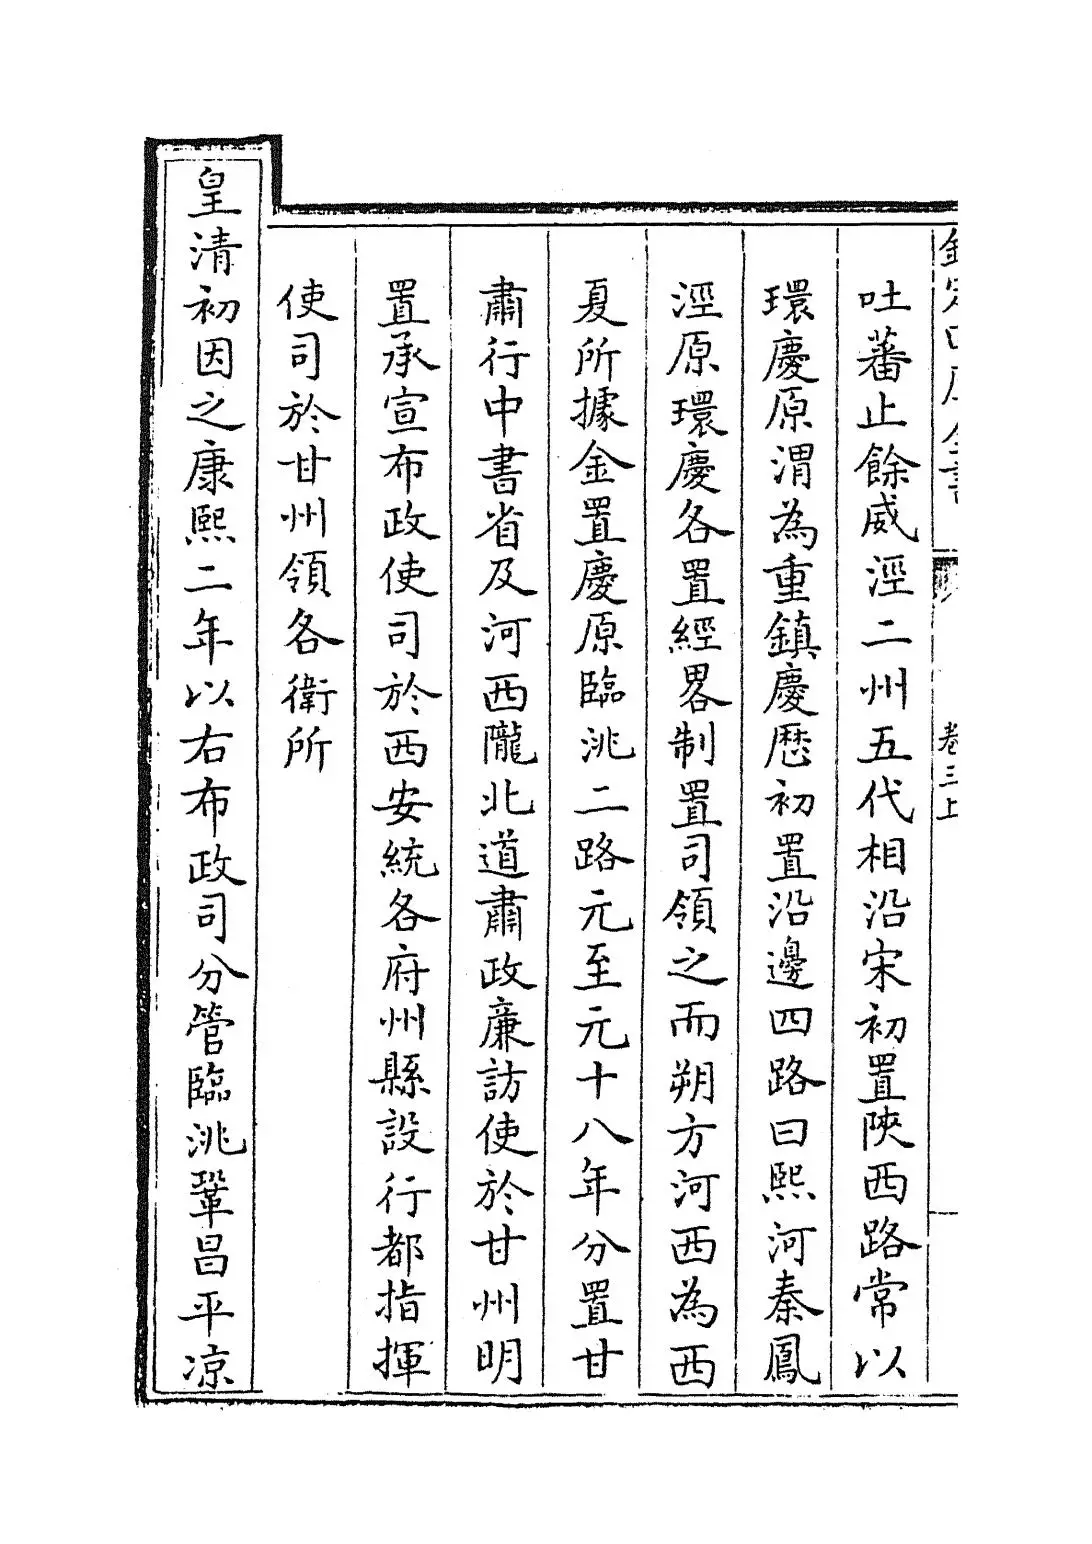 欽定四庫全書
卷三上
吐蕃止餘威涇二州五代相沿宋初置陝西路常以
環慶原渭為重鎮慶歷初置沿邊四路曰熙河秦鳳
涇原環慶各置經畧制置司領之而朔方河西為西
夏所據金置慶原臨洮二路元至元十八年分置甘
肅行中書省及河西隴北道肅政廉訪使於甘州明
置承宣布政使司於西安統各府州縣設行都指揮
使司於甘州領各衛所
皇清初因之康熙二年以右布政司分管臨洮鞏昌平凉